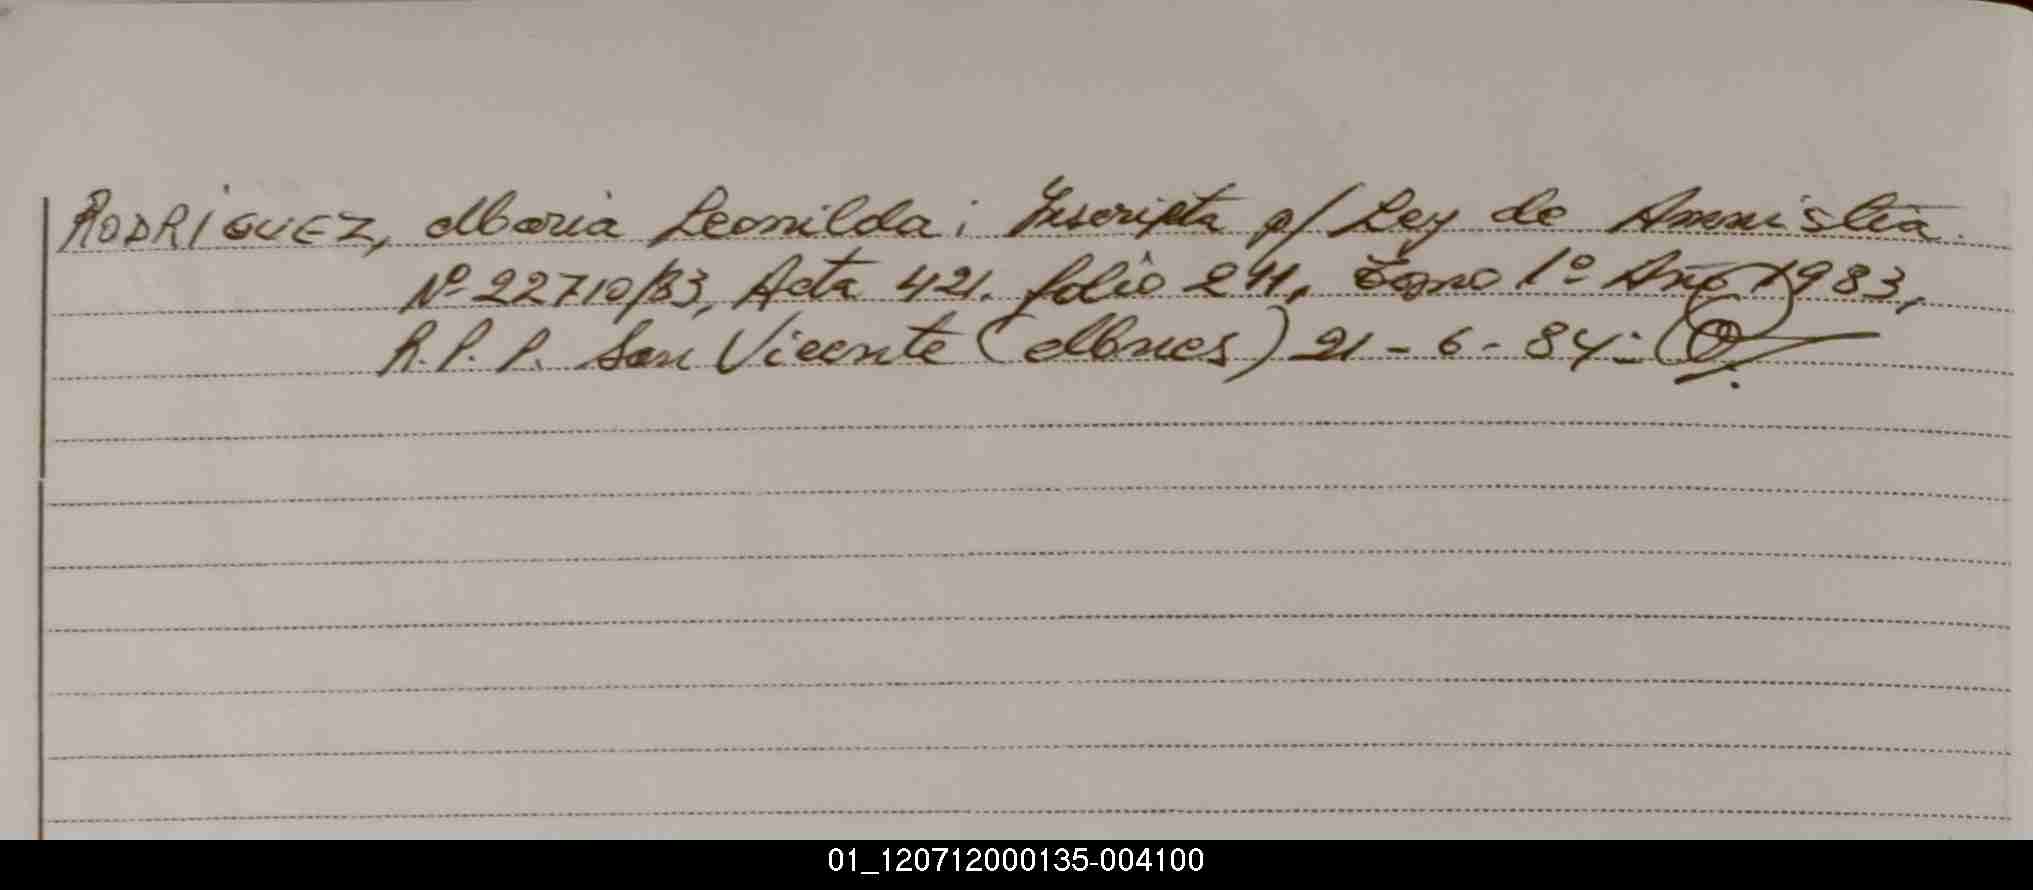 RODRIGUEZ, Maria Leonilda; Inscripta p/ Ley de Amnistia.
Nº 22710/83, Acta 421. folio 211, Tomo 1º Año 1983,
R.P.P. San Vicente (Mnes) 21-6-84:
01_120712000135-004100